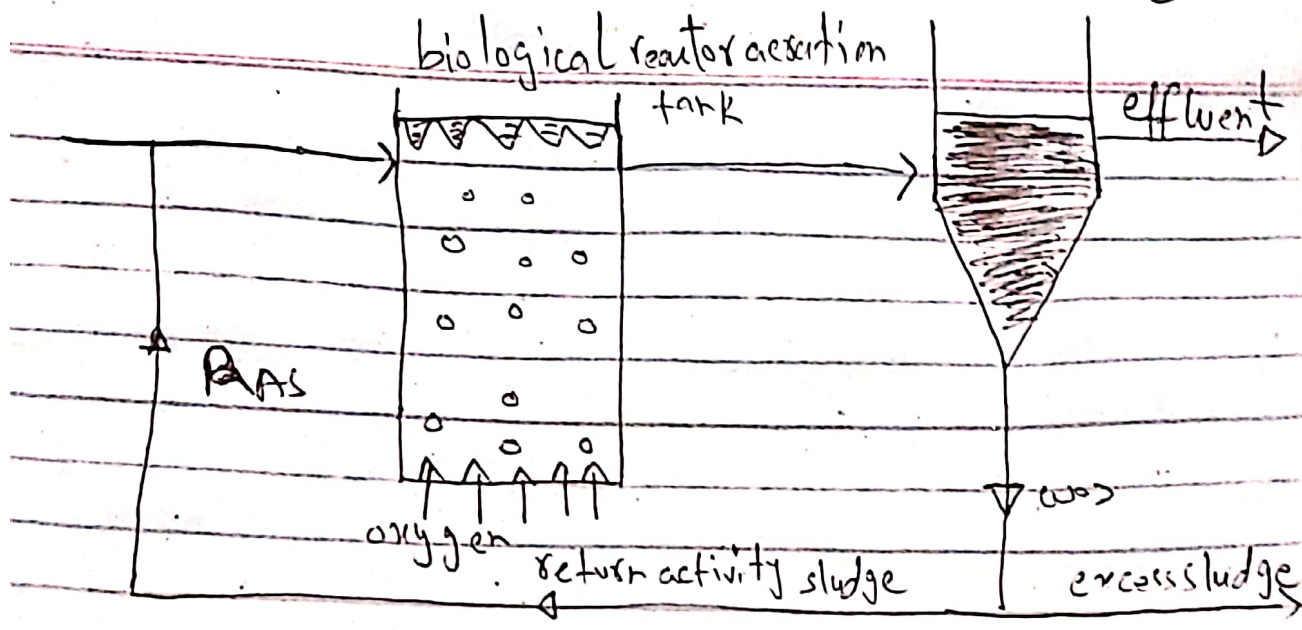 biological reactor aeration
tank
effluent
RAS
oxygen
return activity sludge
excess sludge